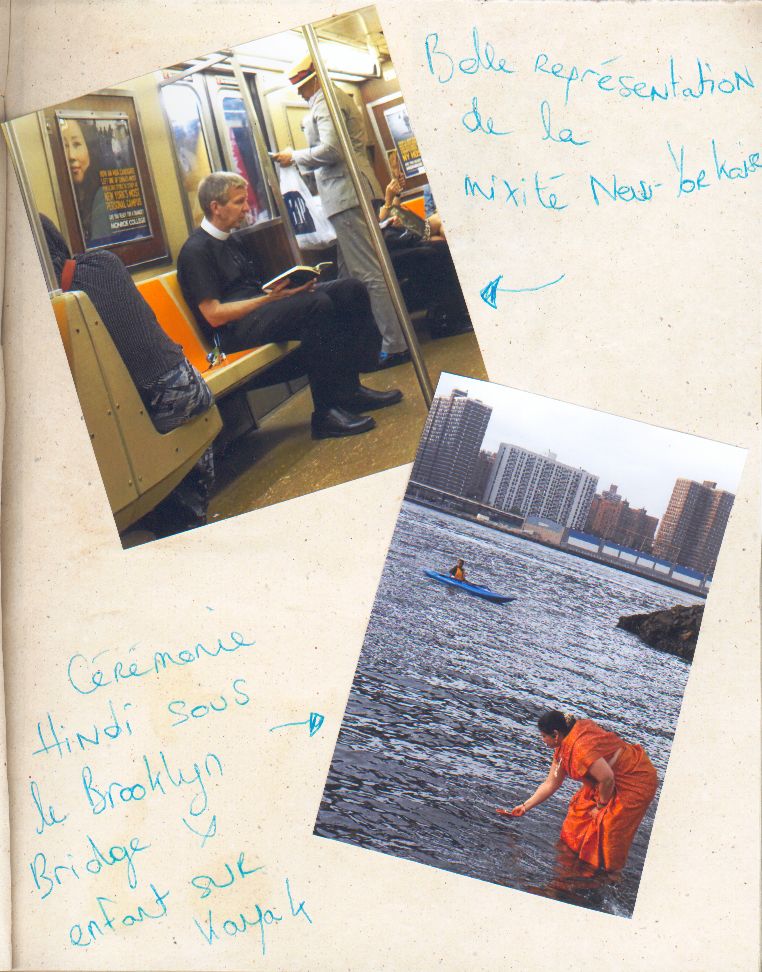 Belle représentation
de la
mixité New-Yorkaise
NEW YORK'S MOST
PERSONAL CAMPUS
MONROE COLLEGE
Cérémonie
Hindi sous
le Brooklyn
Bridge &
enfant sur
Kayak